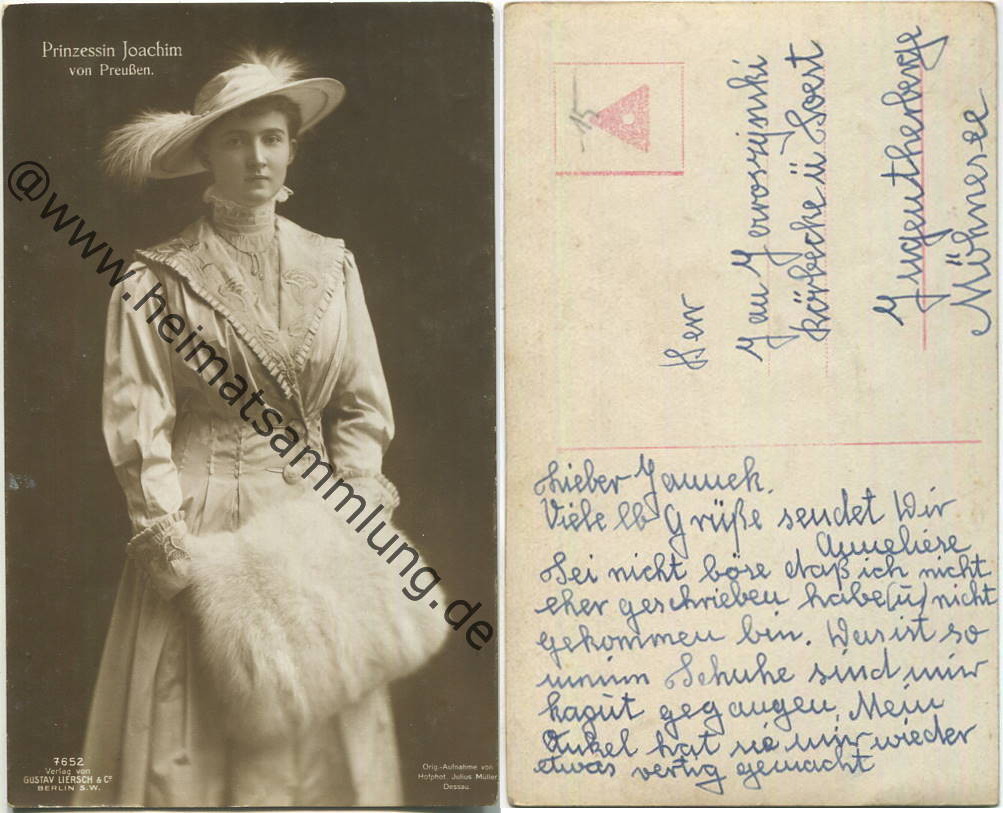 Prinzessin Joachim
von Preußen.
@www.heimatsammlung.de
7652
Verlag von
GUSTAV LIERSCH & Cº
BERLIN S.W.
Orig.-Aufnahme von
Hofphot. Julius Müller
Dessau.
15
Herr
Jau
Körbecke ü Soest
Jugentherberge
Möhnesee
Lieber Jannek.
Viele lb Grüße sendet Wir
Anneliese
Sei nicht böse daß ich nicht
eher geschrieben habe(u) nicht
gekommen bin. Das ist so
Schuhe sind mir
kaput gegangen. Mein
Onkel hat sie mir wieder
etwas vertig gemacht